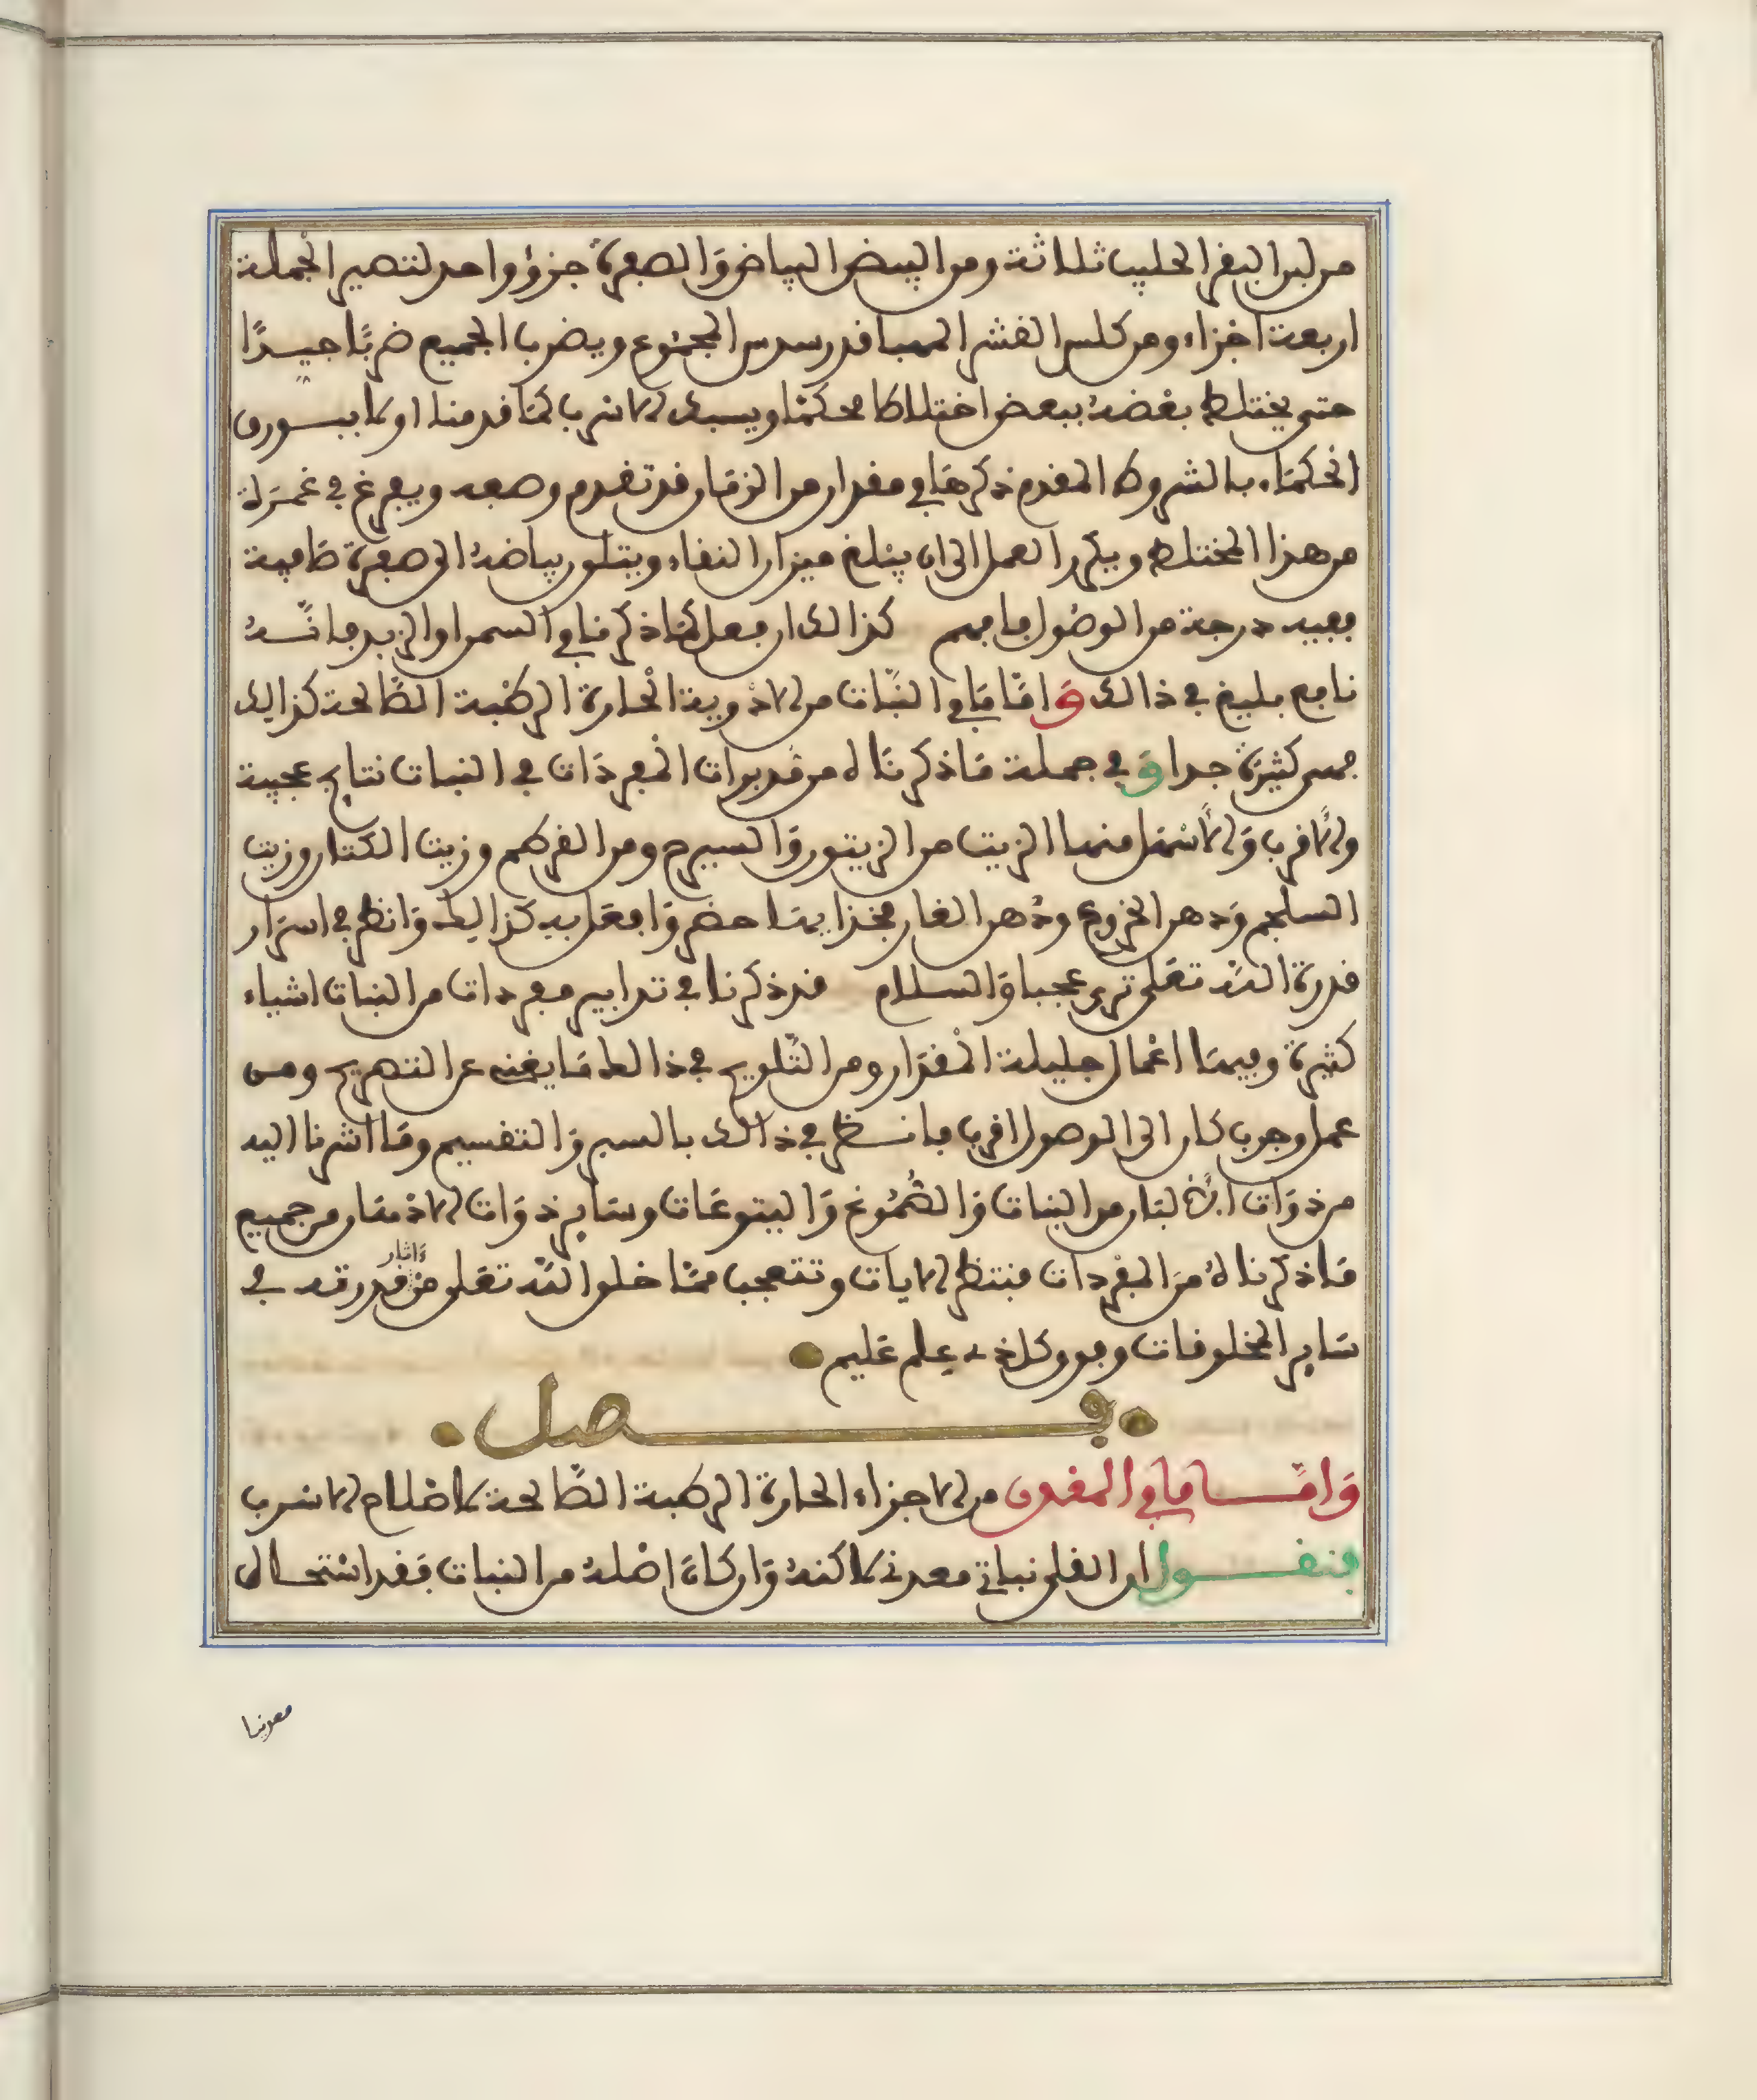 من لبن البقر الحليب ثلاثة ومن البيض البياض وَالصفرة جزؤ واحد لتصير الجملة
اربعة اجزاء ومن كلس القشر المهبا قدر سدس المجموع ويضرب الجميع ضربًا جيدًا
حتى يختلط بعضهُ ببعض اختلاطا محكمًا ويسبك الاسرب كمَا قدمنا او كا ببسورى
الحكمَاء بالشروط المقدم ذكرهَا في مقدار من الزمَان قد تقدم وصفه ويفرغ في غمرَة
من هذا المختلط ويكرر العمل الى ان يبلغ ميزان النقاء ويتلون بياضهُ الى صفرة صَافية
ففيه درجة من الوصُول فافهم كذالك ان فعل كمَا ذكرنا في السمن والزبد فانّهُ
نافع بليغ في ذالك وَامّا مَا في النبَات من الادْوية الحَارة الرطْبة الصَّالحة كذالك
فهى كثيرَة جدا وَفي جملة مَا ذكرنَاه من تدبيرات المفردَات في النبات نتايج عجيبة
والاقرب وَالاسْهَل منها الزيت من الزيتون وَالسيرج ومن القرطم وزيت الكتان وزيت
السلجم وَدهن الخروع ودُهن الغار فخذ ايهَا حضر وَافعَل به كذالك وَانظر في اسرَار
قدرة اللّه تعَلى ترى عجبا وَالسلام قد ذكرنا في تدابير مفردات من النبات اشياء
كثيرة وفيهَا اعْمال جليلة المقدَار ومن التّلويح في ذالك مَا يغنى عن التصريح ومن
عمل وجرب كان الى الوصول اقرب فانظر في ذالك بالسبر وَالتقسيم ومَا اشرنا اليه
من ذوَات الالبَان من النبات وَالصُّمُوغ وَاليتوعَات وسَاير ذوَات الادْهَان من جميع
مَا ذكرناهُ منَ المفردات فنتظر الايات وتتعجب ممَّا خلق اللّه تعَلى من وَاثار قدرته في
سَاير المخلوقات وفوق كل ذى علم عَليم
فصل
وَامّا ما في المعْدن من الاجزاء الحَارة الرطبة الصَّالحة لاصْلاح الاسرب
فنقول ان القلى نباتي معدني لاكنهُ وَان كانَ اصْلهُ من النبات فقد استحال
معدنيا